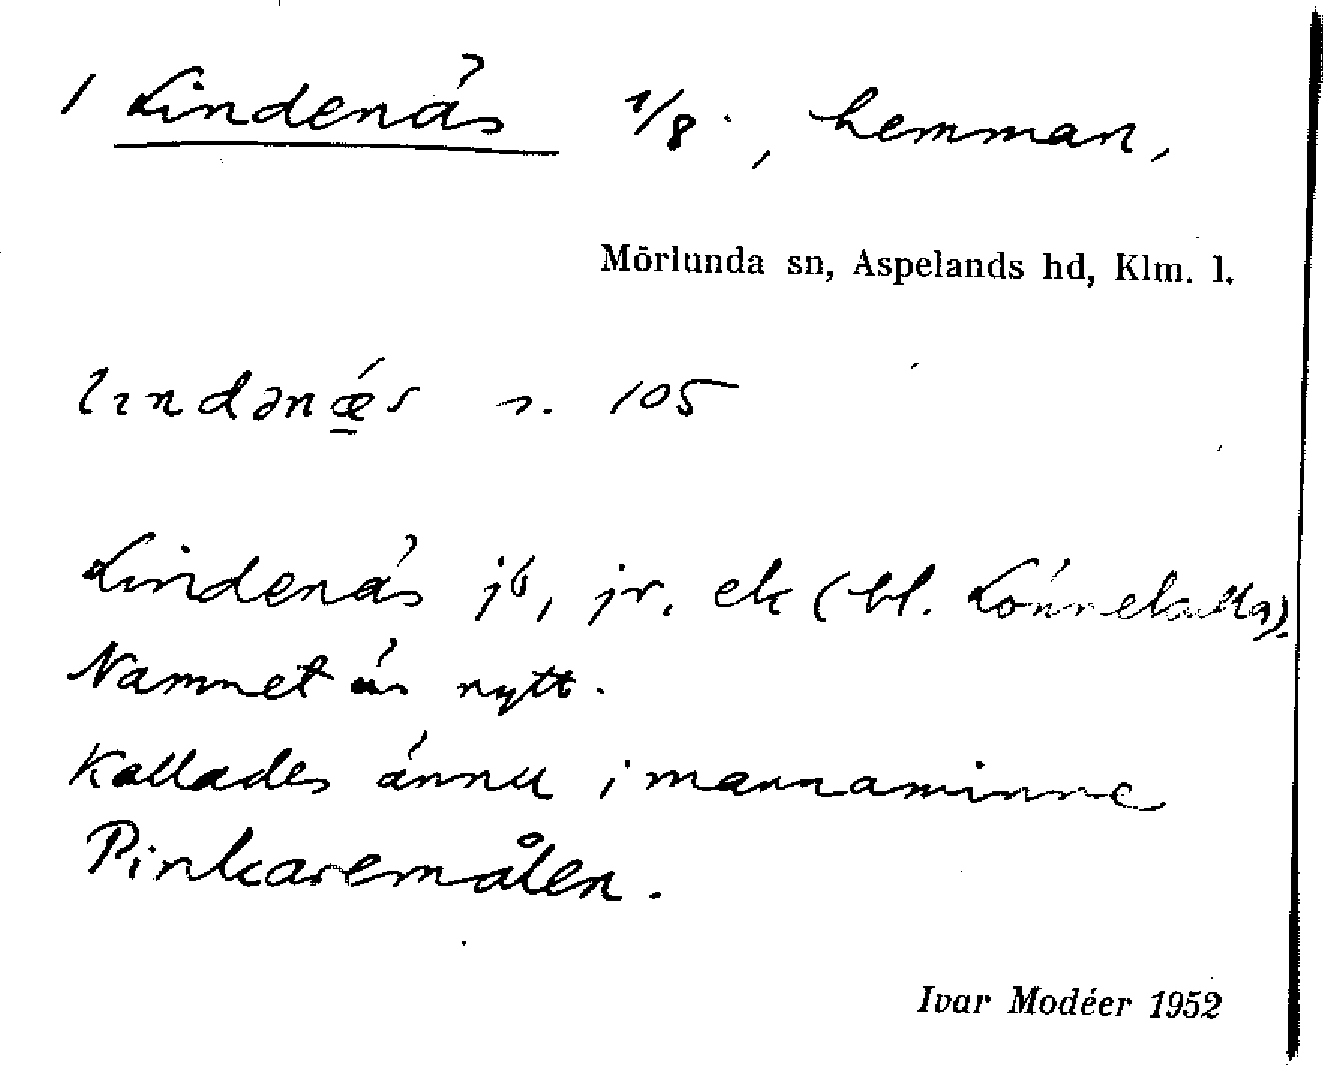 1 Lindenäs 1/8, hemman,
Mörlunda sn, Aspelands hd, Klm. l.
lındənǽ̠s s. 105
Lindenäs jb, jr. ek (bl. Lönnekulla).
Namnet är nytt.
Kallades ännu i mannaminne
Pinkaremålen.
Ivar Modéer 1952